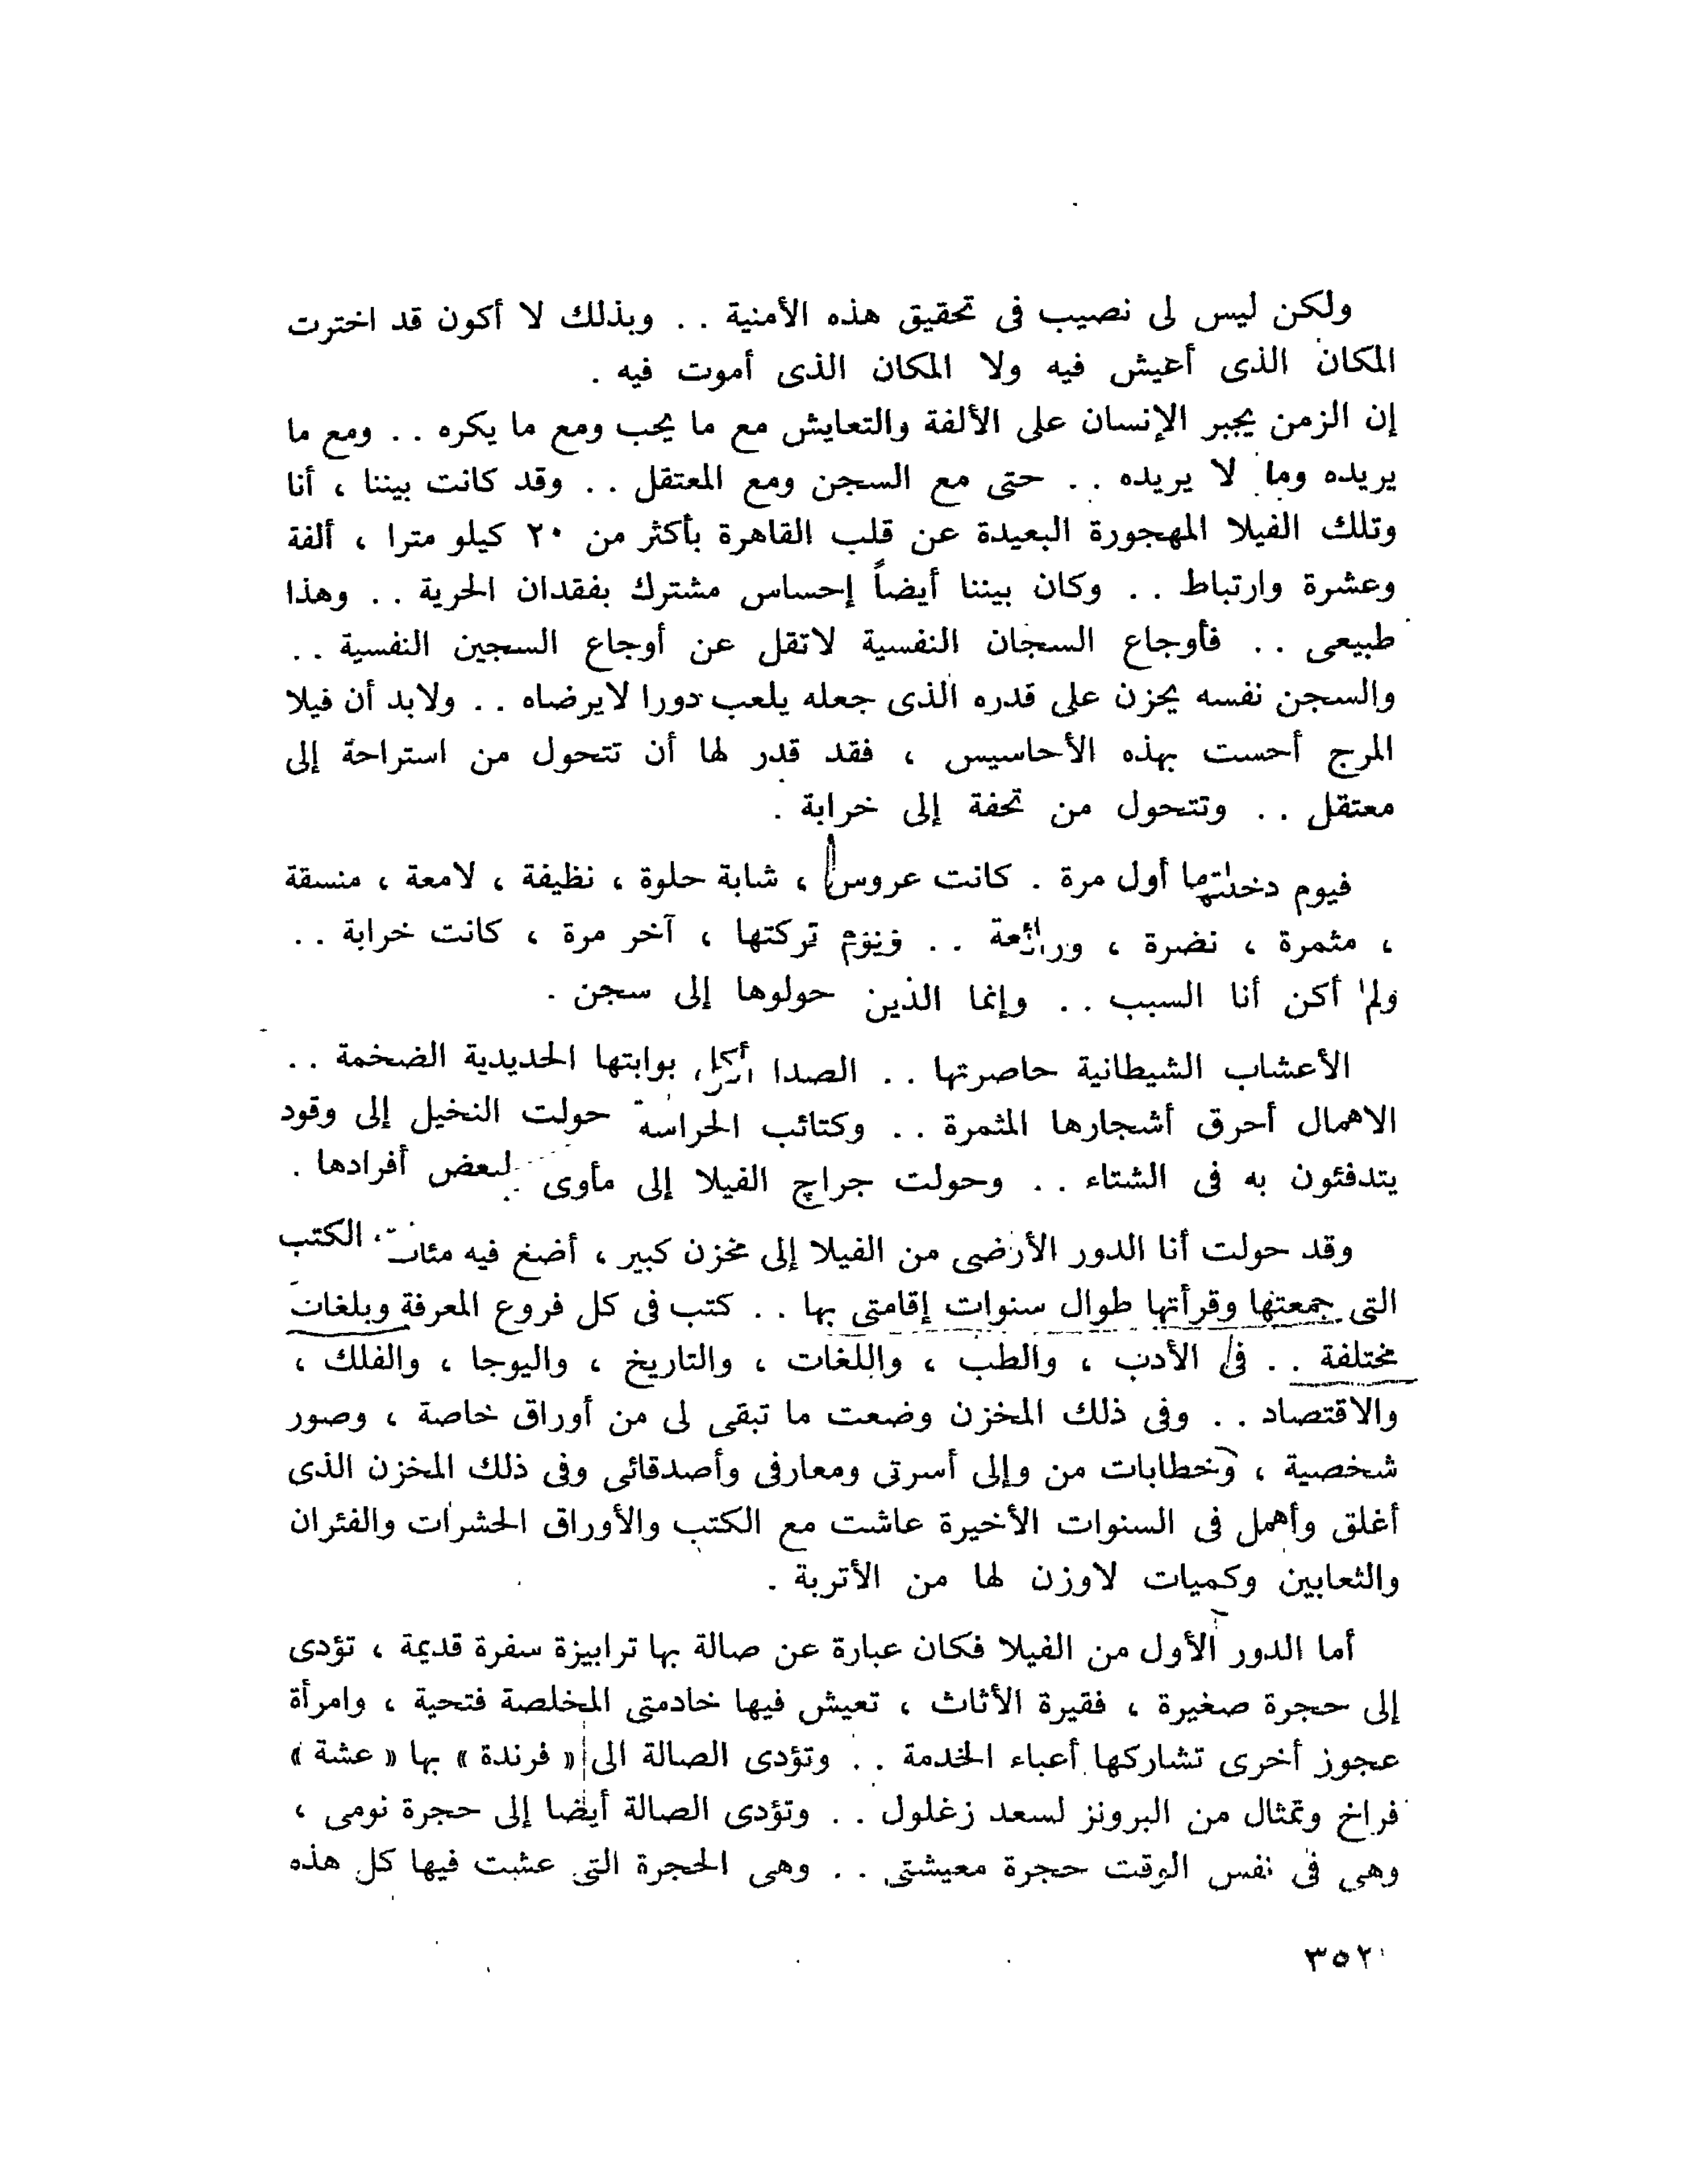 ولكن ليس لى نصيب فى تحقيق هذه الأمنية . . وبذلك لا أكون قد اخترت
المكان الذى أعيش فيه ولا المكان الذى أموت فيه .
إن الزمن يجبر الإنسان على الألفة والتعايش مع ما يحب ومع ما يكره . . ومع ما
يريده وما لا يريده . . حتى مع السجن ومع المعتقل . . وقد كانت بيننا ، أنا
وتلك الفيلا المهجورة البعيدة عن قلب القاهرة بأكثر من ٢٠ كيلو مترا ، ألفة
وعشرة وارتباط . . وكان بيننا أيضاً إحساس مشترك بفقدان الحرية . . وهذا
طبيعى . . فأوجاع السجان النفسية لاتقل عن أوجاع السجين النفسية . .
والسجن نفسه يحزن على قدره الذى جعله يلعب دورا لايرضاه . . ولابد أن فيلا
المرج أحست بهذه الأحاسيس ، فقد قدر لها أن تتحول من استراحة إلى
معتقل . . وتتحول من تحفة إلى خرابة .
فيوم دخلتها أول مرة . كانت عروسا ، شابة حلوة ، نظيفة ، لامعة ، منسقة
، مثمرة ، نضرة ، ورائعة . . ويوم تركتها ، آخر مرة ، كانت خرابة . .
ولم أكن أنا السبب . . وإنما الذين حولوها إلى سجن .
الأعشاب الشيطانية حاصرتها . . الصدا أكل بوابتها الحديدية الضخمة . .
الاهمال أحرق أشجارها المثمرة . . وكتائب الحراسة حولت النخيل إلى وقود
يتدفئون به فى الشتاء . . وحولت جراج الفيلا إلى مأوى لبعض أفرادها .
وقد حولت أنا الدور الأرضى من الفيلا إلى مخزن كبير ، أضع فيه مئات الكتب
التى جمعتها وقرأتها طوال سنوات إقامتى بها . . كتب فى كل فروع المعرفة وبلغات
مختلفة . . فى الأدب ، والطب ، واللغات ، والتاريخ ، واليوجا ، والفلك ،
والاقتصاد . . وفى ذلك المخزن وضعت ما تبقى لى من أوراق خاصة ، وصور
شخصية ، وخطابات من وإلى أسرتى ومعارفى وأصدقائى وفى ذلك المخزن الذى
أغلق وأهمل فى السنوات الأخيرة عاشت مع الكتب والأوراق الحشرات والفئران
والثعابين وكميات لاوزن لها من الأتربة .
أما الدور الأول من الفيلا فكان عبارة عن صالة بها ترابيزة سفرة قديمة ، تؤدى
إلى حجرة صغيرة ، فقيرة الأثاث ، تعيش فيها خادمتى المخلصة فتحية ، وامرأة
عجوز أخرى تشاركها أعباء الخدمة . . وتؤدى الصالة الى « فرندة » بها « عشة »
فراخ وتمثال من البرونز لسعد زغلول . . وتؤدى الصالة أيضا إلى حجرة نومى ،
وهى فى نفس الوقت حجرة معيشتى . . وهى الحجرة التى عشت فيها كل هذه
٣٥٢